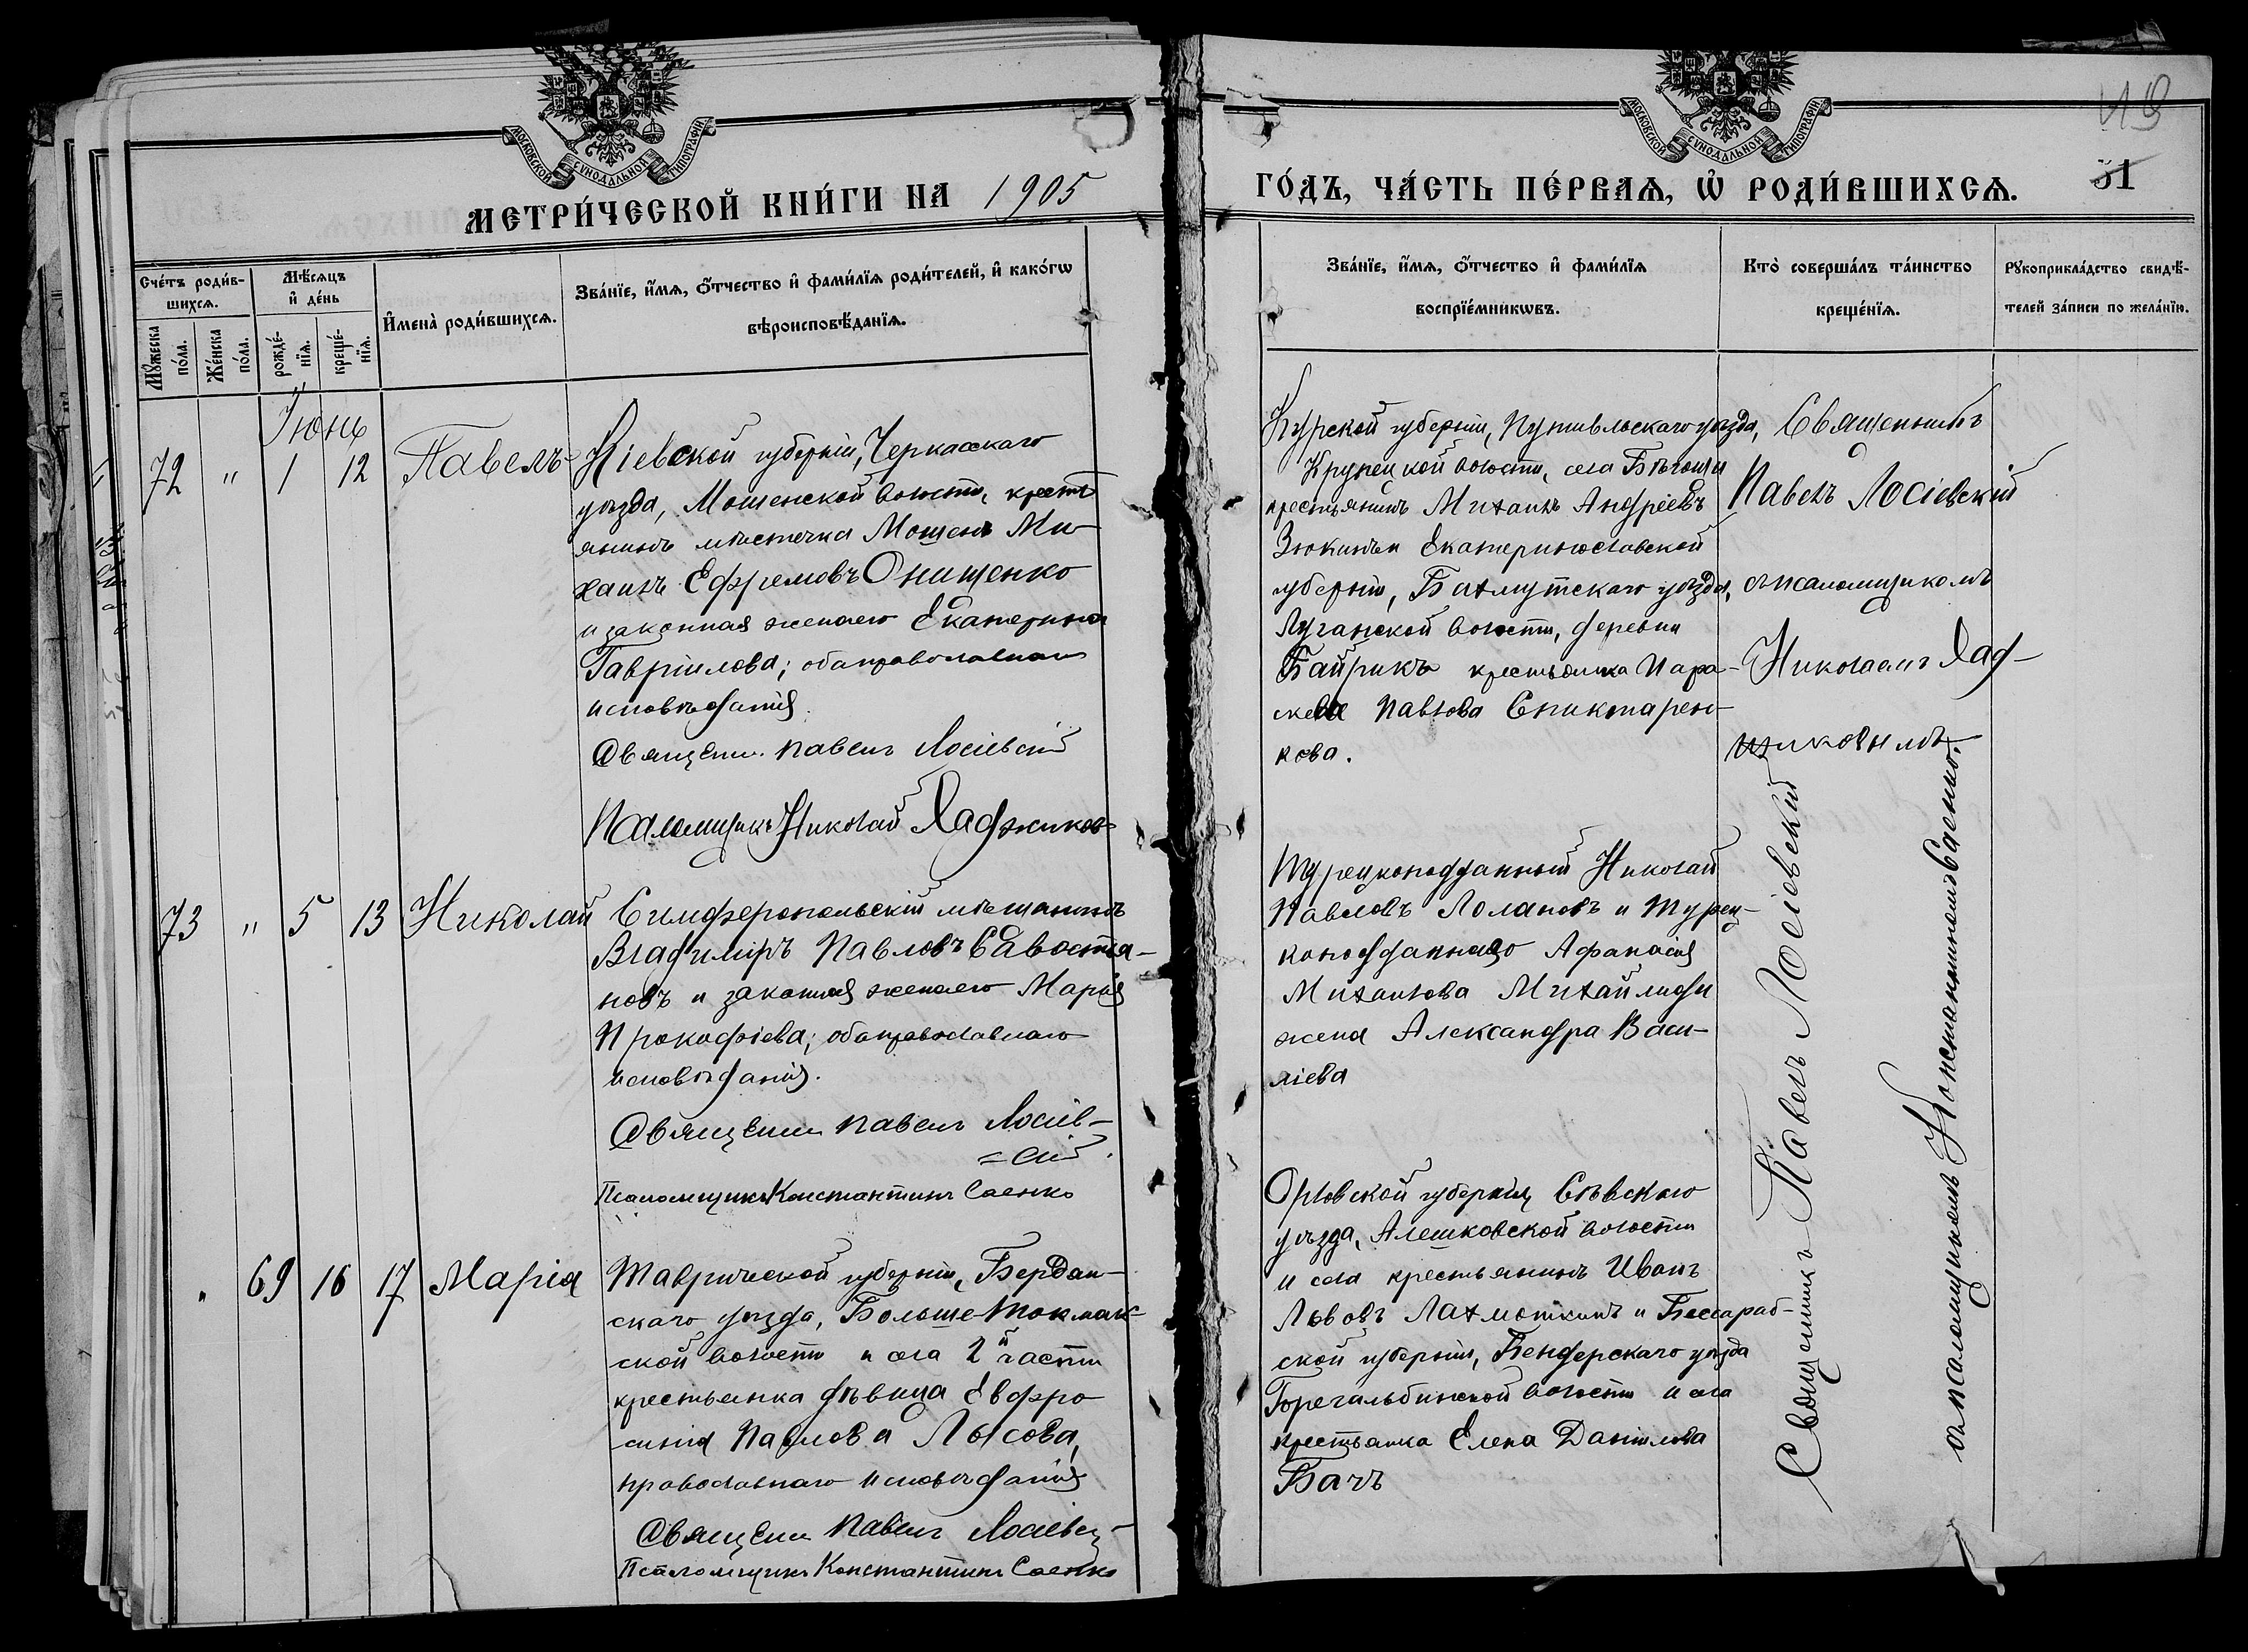 МОСКОВСКОЙ СѴНОДАЛЬНОЙ ТИПОГРАФІИ
МЕТРИ́ЧЕСКОЙ КНИ́ГИ НА 1905
Счéтъ роди́в-
шихсѧ.
Мꙋ́жеска
по́ла.
Же́нска
по́ла.
Мѣ́сѧцъ
и҆ де́нь
рожде́-
нїѧ.
креще́-
нїѧ.
И҆мена̀ роди́вшихсѧ.
Зва́нїе, и҆́мѧ, ѻ҆́тчество и҆ фами́лїѧ роди́телей, и҆ како́гѡ
вѣроисповѣ́данїѧ.
Іюнь
72 " 1 12 Павелъ
Кіевской губерніи, Черкасскаго
уѣзда, Мошенской волости, кресть
янинъ мѣстечка Мошенъ Ми-
хаилъ Ефремовъ Онищенко
и законная жена его Екатерина
Гавріилова; оба православнаго
исповѣданія.
Священн. Павелъ Лосіевскій
Псаломщикъ Николай Хаджиковъ
73 " 5 13 Николай
Симферопольскій мѣщанинъ
Владиміръ Павловъ Савостья-
новъ и законная жена его Марія
Прокофіева; оба православнаго
исповѣданія.
Священн Павелъ Лосіев-
=скій.
Псаломщикъ Константинъ Саенко
" 69 16 17 Марія
Таврической губерніи, Бердян-
скаго уѣзда, Больше-Токмак-
ской волости и села 2й части
крестьянка дѣвица Евфро
синія Павлова Лысова,
православнаго исповѣданія
Священн Павелъ Лосіевск
Псаломщикъ Константинъ Саенко
МОСКОВСКОЙ СѴНОДАЛЬНОЙ ТИПОГРАФІИ
ГО́ДЪ, ЧА́СТЬ ПЕ́РВАѦ, Ѡ҆ РОДИ́ВШИХСѦ.
51
Зва́нїе, и҆́мѧ, ѻ҆́тчество и҆ фами́лїѧ
воспрїе́мникѡвъ.
Кто̀ соверша́лъ та́инство
креще́нїѧ.
Рꙋкоприкла́дство свидѣ́-
телей за́писи по жела́нїю.
Курской губерніи, Путивльскаго уѣзда,
Крупецкой волости, села
крестьянинъ Михаилъ Андреевъ
Зюкинъ и Екатеринославской
губерніи, Бахмутскаго уѣзда,
Луганской волости, деревни
Байракъ крестьянка Пара-
скева Павлова
кова.
Священникъ
Павелъ Лосіевскій
съ псаломщикомъ
Николаемъ Хад-
жиковымъ.
Турецкоподданный Николай
Павловъ Ломановъ и Турец-
коподданнаго Афанасія
Михаилова Михайлиди
жена Александра Васи-
ліева
Орловской губерніи, Сѣвскаго
уѣзда, Алешковской волости
и села крестьянинъ Иванъ
Львовъ Лахмоткинъ и Бессараб-
ской губерніи, Бендерскаго уѣзда
волости и села
крестьянка Елена Даніилова
Бачъ
Священникъ Павелъ Лосіевскій
съ псаломщикомъ Константиномъ Саенко.